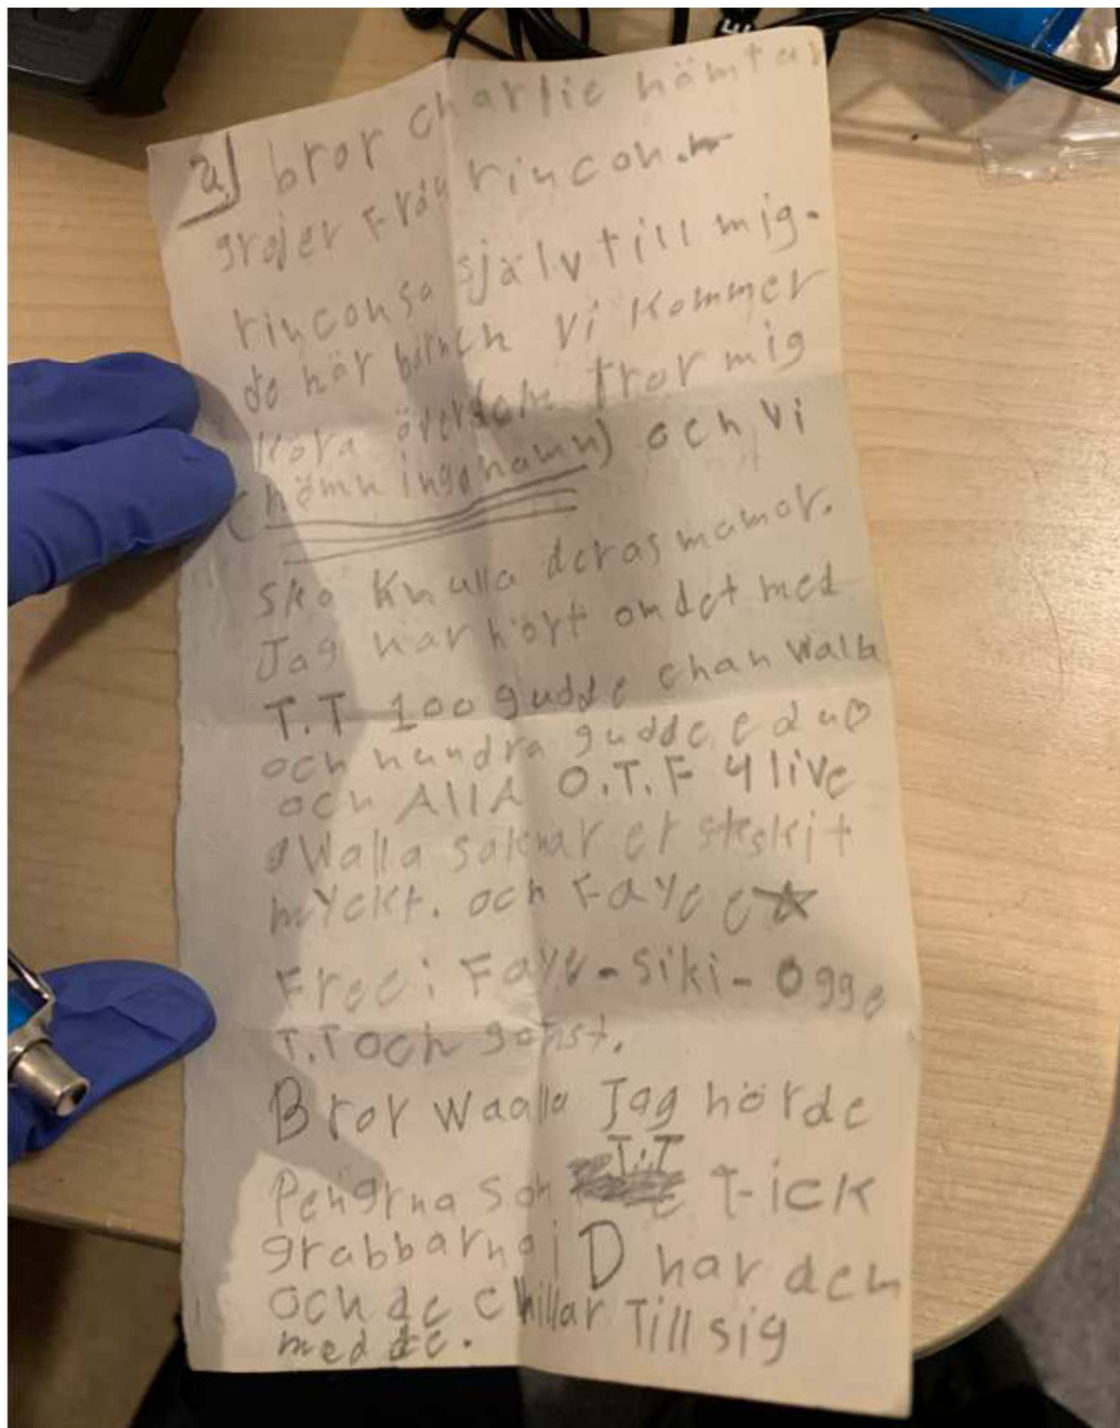 2) bror charlie hämtar
grejer från rincon.
rincon sa själv till mig.
de här barnen vi kommer
köra över dem tror mig
(hämningshamn) och vi
ska knulla deras mamor.
Jag har hört om det med
T.T 100 gudde chan Walla
och hundra gudde e du
och AllA O.T.F 4 live
Walla saknar er skit
myckt. och Faye e
Free: Faye-siki-ogge
T.T och gonst.
Bror Waalla Jag hörde
Pengrna som T.T fick
grabbarna i D har den
och de chillar Till sig
med de.